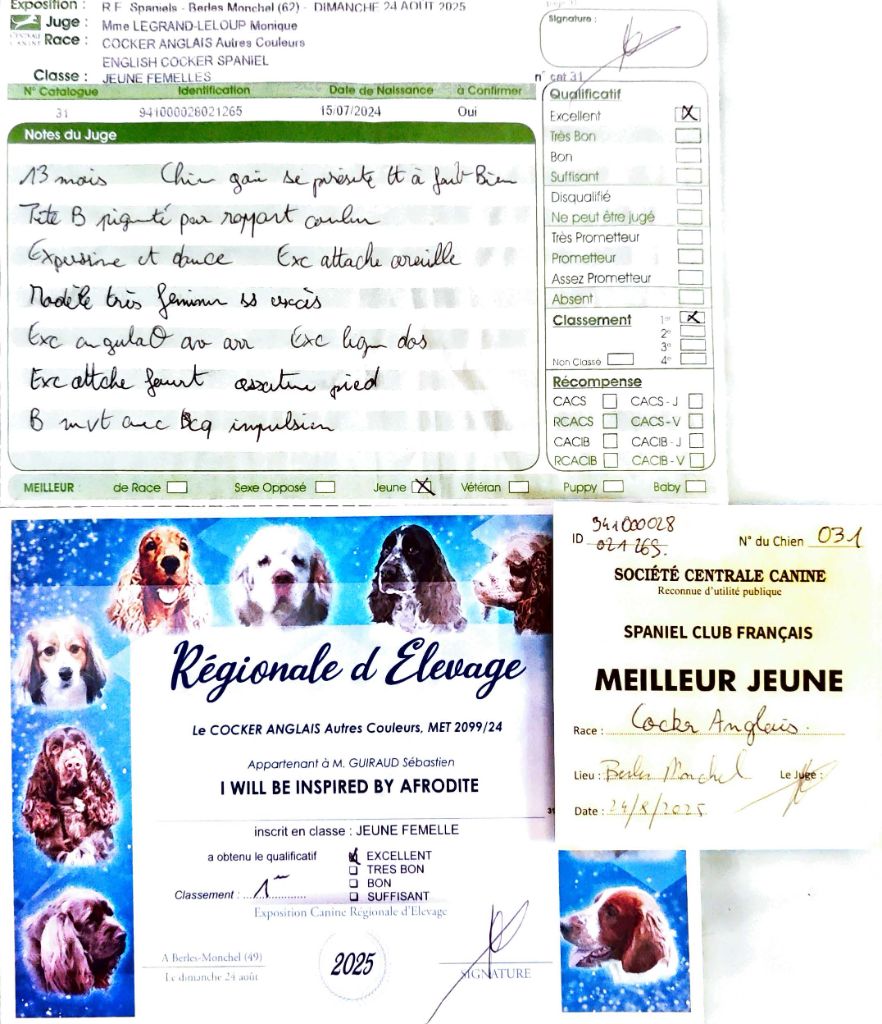 Exposition : R.E. Spaniels - Berles Monchel (62) - DIMANCHE 24 AOUT 2025
Juge : Mme LEGRAND-LELOUP Monique
CENTRALE CANINE
Race : COCKER ANGLAIS Autres Couleurs
ENGLISH COCKER SPANIEL
Classe : JEUNE FEMELLES
Signature :
n° cat 31
N° Catalogue Identification Date de Naissance à Confirmer
31 941000028021265 15/07/2024 Oui
Notes du Juge
13 mois Chien gai se présente tt à fait Bien
Tête B pigmenté par rapport couleur
Expressive et douce Exc attache oreille
Modèle très féminin ss excès
Exc angulaO av arr Exc ligne dos
Exc attche fouet ossature pied
B mvt avec Bcq impulsion
Qualificatif
Excellent X
Très Bon
Bon
Suffisant
Disqualifié
Ne peut être jugé
Très Prometteur
Prometteur
Assez Prometteur
Absent
Classement 1er X
2e
3e
Non Classé 4e
Récompense
CACS CACS - J
RCACS CACS - V
CACIB CACIB - J
RCACIB CACIB - V
MEILLEUR : de Race Sexe Opposé Jeune X Vétéran Puppy Baby
Régionale d Elevage
Le COCKER ANGLAIS Autres Couleurs, MET 2099/24
Appartenant à M. GUIRAUD Sébastien
I WILL BE INSPIRED BY AFRODITE
inscrit en classe : JEUNE FEMELLE
a obtenu le qualificatif EXCELLENT
TRES BON
BON
SUFFISANT
Classement : 1
Exposition Canine Régionale d'Elevage
A Berles-Monchel (49)
Le dimanche 24 août
2025
SIGNATURE
941000028
ID 021265. N° du Chien 031
SOCIÉTÉ CENTRALE CANINE
Reconnue d'utilité publique
SPANIEL CLUB FRANÇAIS
MEILLEUR JEUNE
Race : Cocker Anglais
Lieu : Berles Monchel Le Juge :
Date : 24/8/2025